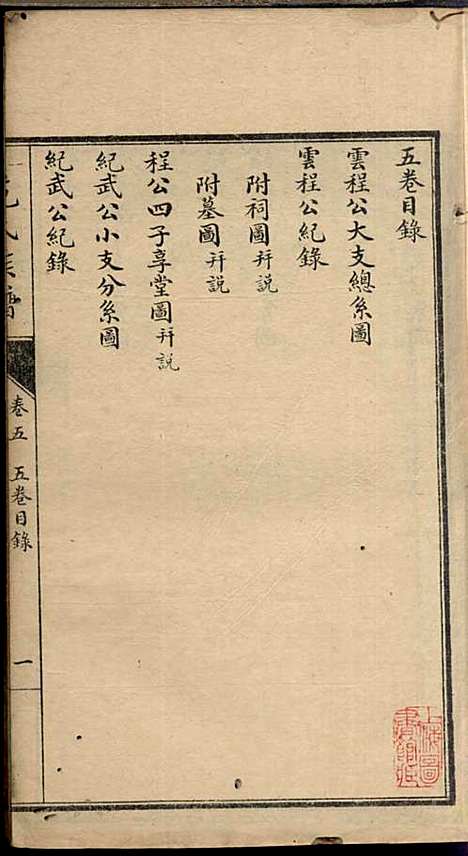 五卷目錄
雲程公大支總系圖
雲程公紀錄
附祠圖并說
附墓圖并說
程公四子享堂圖并說
紀武公小支分系圖
紀武公紀錄
氏族譜
卷五 五卷目錄 一
上海圖書館藏